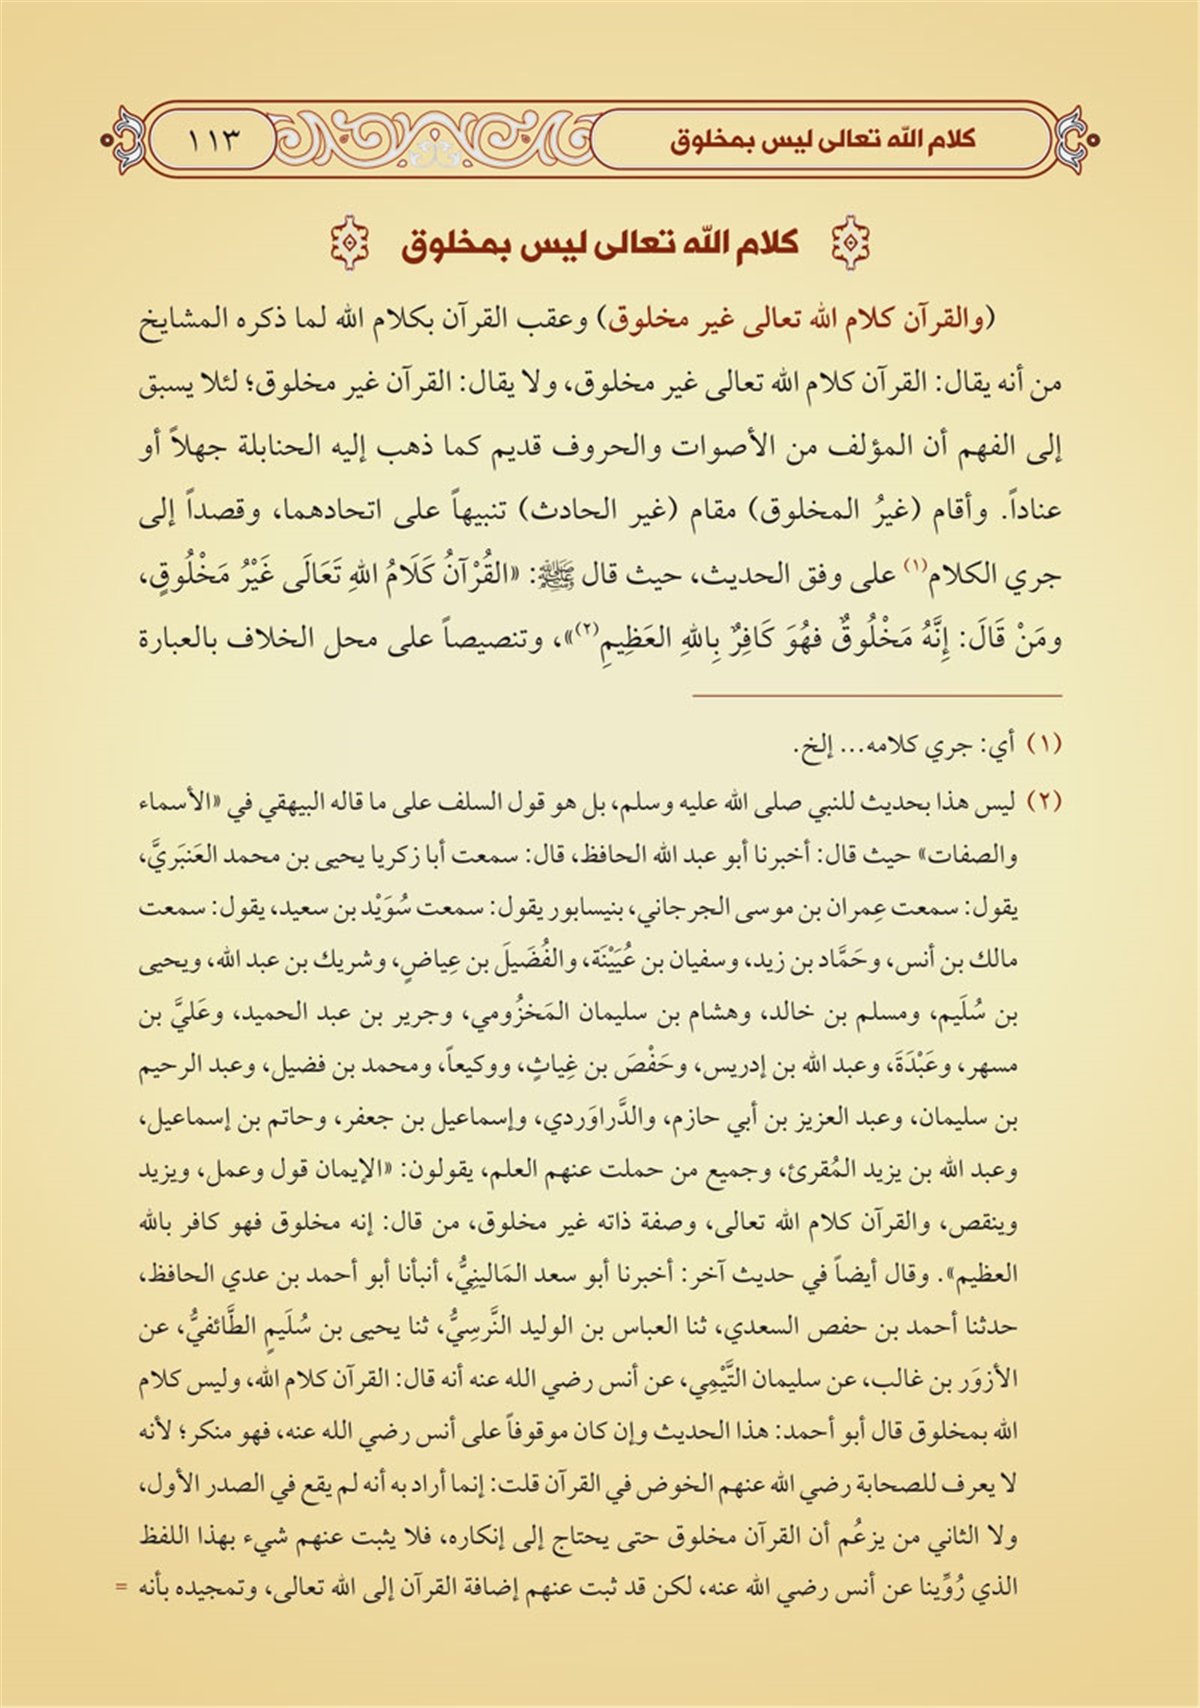 كلام الله تعالى ليس بمخلوق
١١٣
كلام الله تعالى ليس بمخلوق
(والقرآن كلام الله تعالى غير مخلوق) وعقب القرآن بكلام الله لما ذكره المشايخ
من أنه يقال: القرآن كلام الله تعالى غير مخلوق، ولا يقال: القرآن غير مخلوق؛ لئلا يسبق
إلى الفهم أن المؤلف من الأصوات والحروف قديم كما ذهب إليه الحنابلة جهلاً أو
عناداً. وأقام (غيرُ المخلوق) مقام (غير الحادث) تنبيهاً على اتحادهما، وقصداً إلى
جري الكلام(١) على وفق الحديث، حيث قال ﷺ: «القُرْآنُ كَلَامُ اللهِ تَعَالَى غَيْرُ مَخْلُوقٍ،
ومَنْ قَالَ: إِنَّهُ مَخْلُوقٌ فهُوَ كَافِرٌ بِاللهِ العَظِيمِ(٢)»، وتنصيصاً على محل الخلاف بالعبارة
(١) أي: جري كلامه... إلخ.
(٢) ليس هذا بحديث للنبي صلى الله عليه وسلم، بل هو قول السلف على ما قاله البيهقي في «الأسماء
والصفات» حيث قال: أخبرنا أبو عبد الله الحافظ، قال: سمعت أبا زكريا يحيى بن محمد العَنبَريَّ،
يقول: سمعت عِمران بن موسى الجرجاني، بنيسابور يقول: سمعت سُوَيْد بن سعيد، يقول: سمعت
مالك بن أنس، وحَمَّاد بن زيد، وسفيان بن عُيَيْنَة، والفُضَيلَ بن عِياضٍ، وشريك بن عبد الله، ويحيى
بن سُلَيم، ومسلم بن خالد، وهشام بن سليمان المَخزُومي، وجرير بن عبد الحميد، وعَليَّ بن
مسهر، وعَبْدَةَ، وعبد الله بن إدريس، وحَفْصَ بن غِياثٍ، ووكيعاً، ومحمد بن فضيل، وعبد الرحيم
بن سليمان، وعبد العزيز بن أبي حازم، والدَّراوَردي، وإسماعيل بن جعفر، وحاتم بن إسماعيل،
وعبد الله بن يزيد المُقرئ، وجميع من حملت عنهم العلم، يقولون: «الإيمان قول وعمل، ويزيد
وينقص، والقرآن كلام الله تعالى، وصفة ذاته غير مخلوق، من قال: إنه مخلوق فهو كافر بالله
العظيم». وقال أيضاً في حديث آخر: أخبرنا أبو سعد المَالينِيُّ، أنبأنا أبو أحمد بن عدي الحافظ،
حدثنا أحمد بن حفص السعدي، ثنا العباس بن الوليد النَّرسِيُّ، ثنا يحيى بن سُلَيمٍ الطَّائفيُّ، عن
الأزوَر بن غالب، عن سليمان التَّيْمِي، عن أنس رضي الله عنه أنه قال: القرآن كلام الله، وليس كلام
الله بمخلوق قال أبو أحمد: هذا الحديث وإن كان موقوفاً على أنس رضي الله عنه، فهو منكر؛ لأنه
لا يعرف للصحابة رضي الله عنهم الخوض في القرآن قلت: إنما أراد به أنه لم يقع في الصدر الأول،
ولا الثاني من يزعُم أن القرآن مخلوق حتى يحتاج إلى إنكاره، فلا يثبت عنهم شيء بهذا اللفظ
الذي رُوِّينا عن أنس رضي الله عنه، لكن قد ثبت عنهم إضافة القرآن إلى الله تعالى، وتمجيده بأنه =